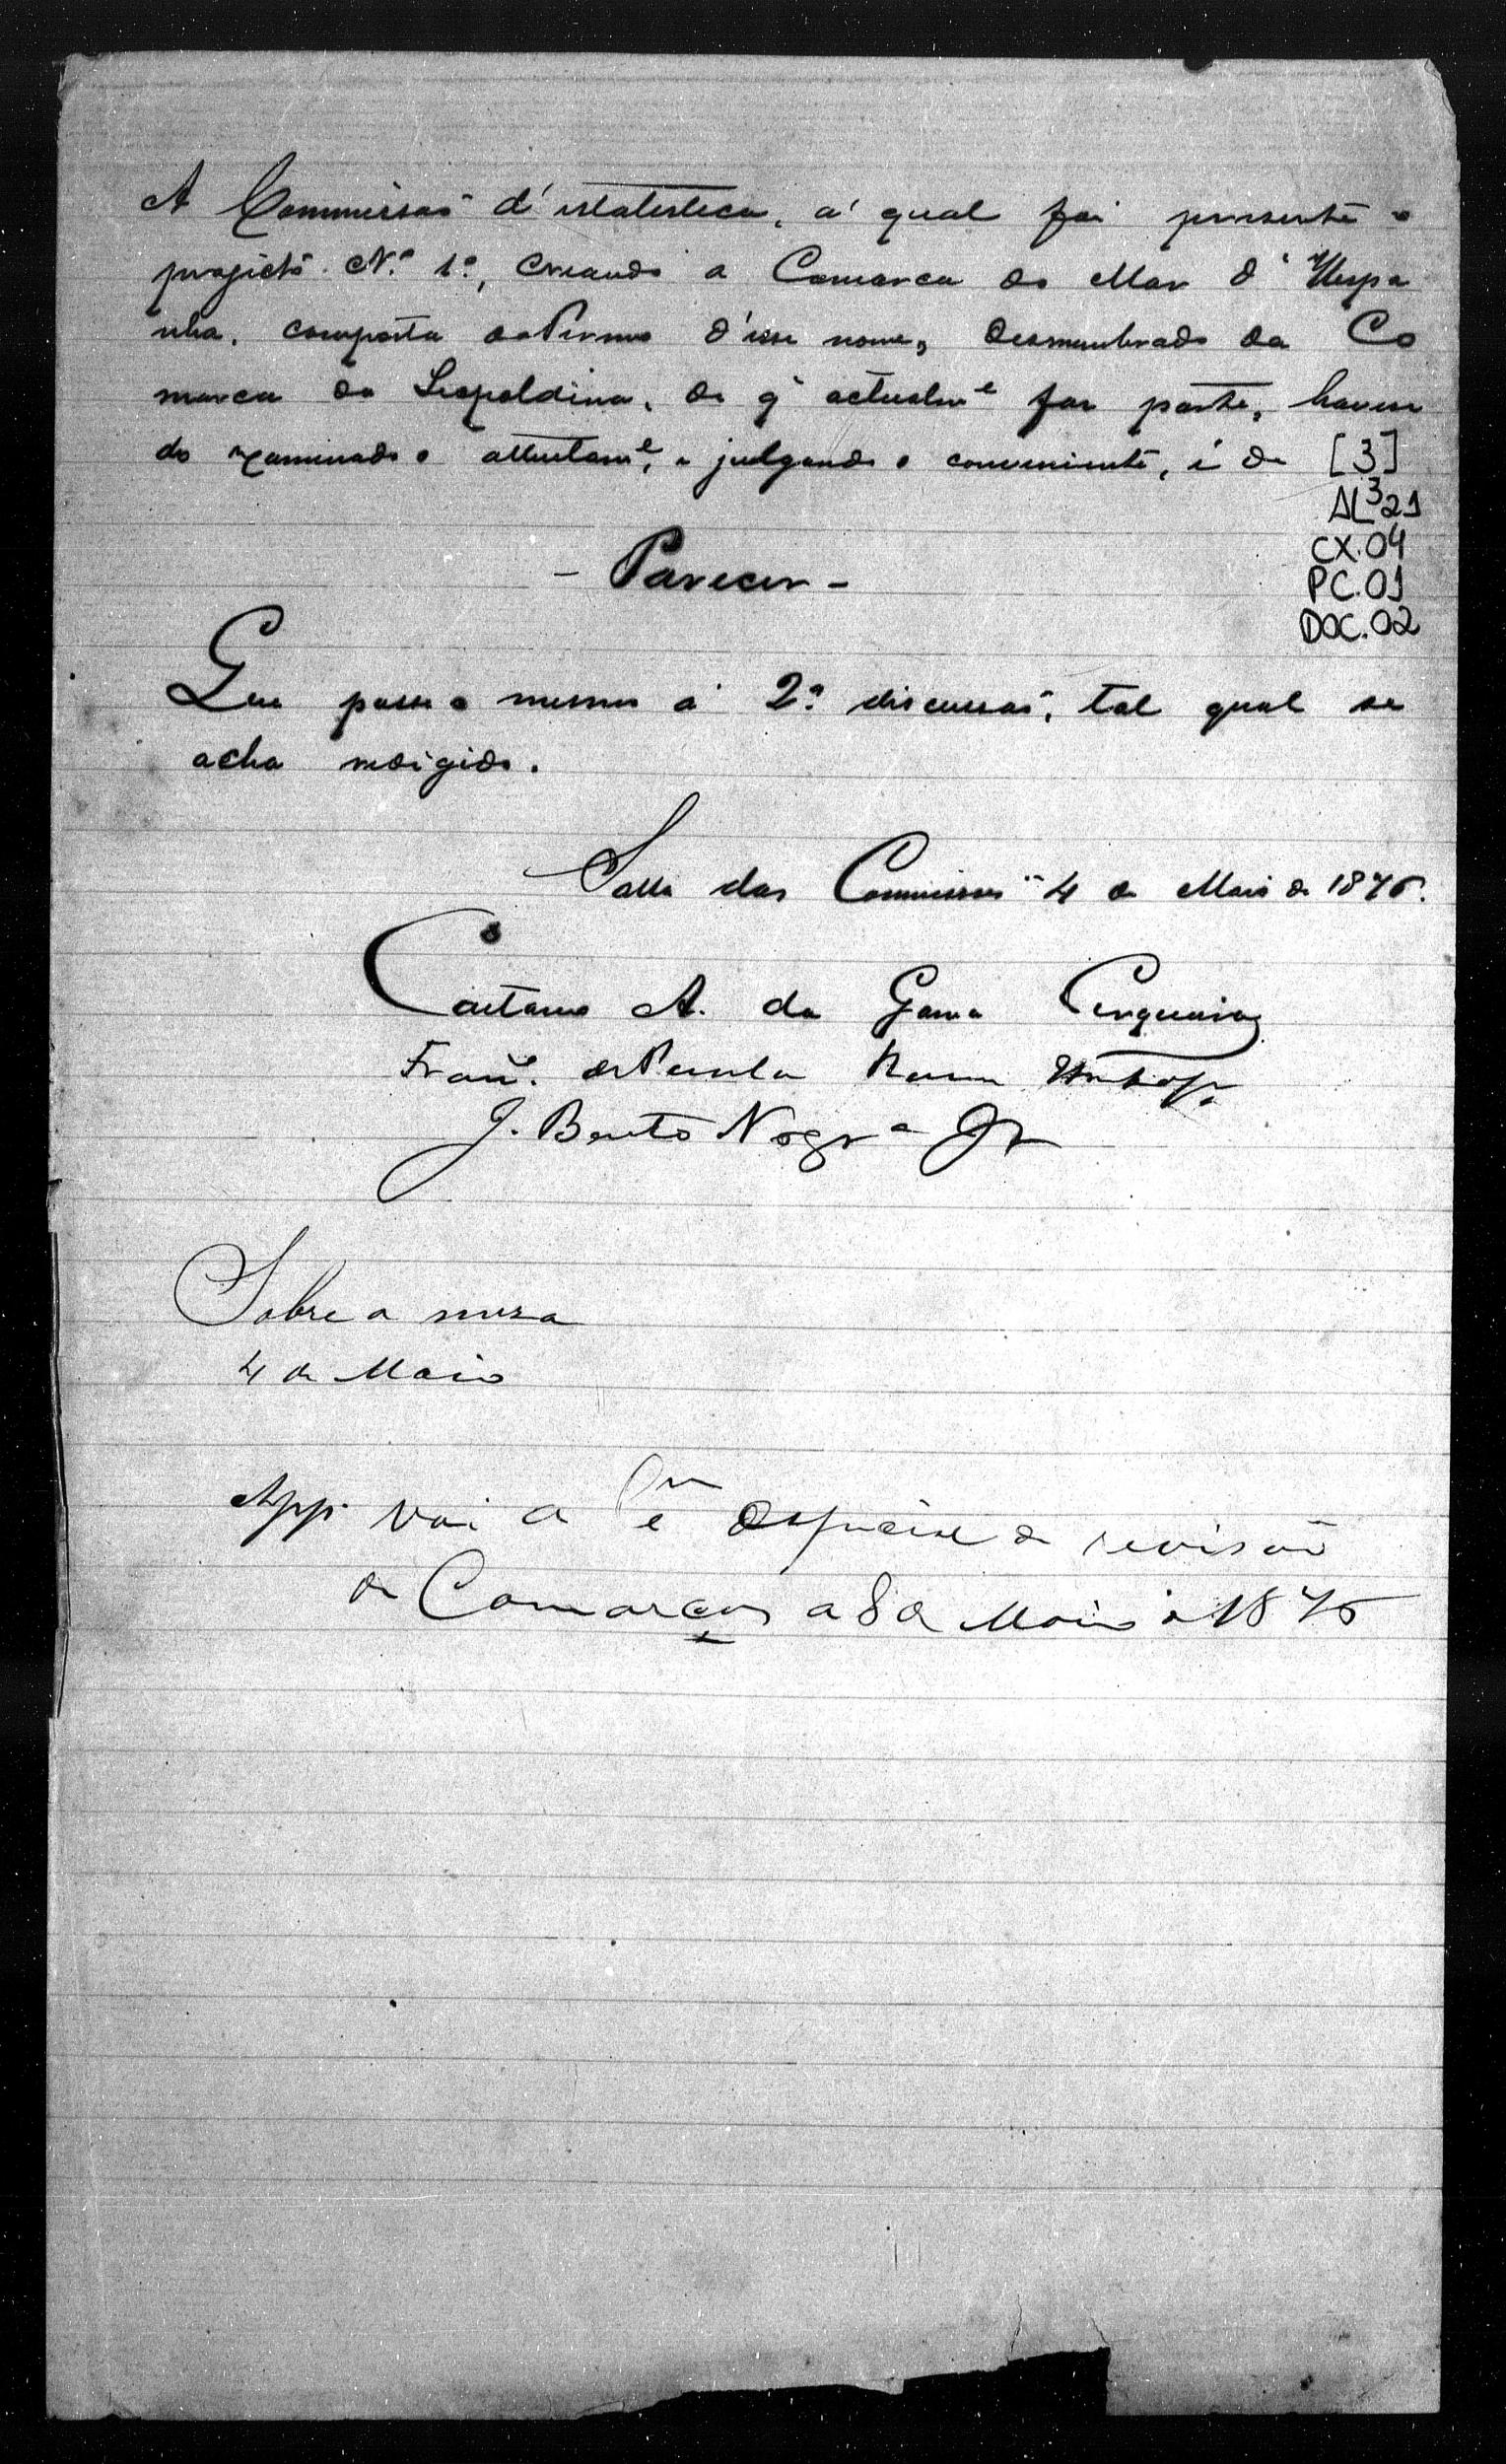 A Commissaõ d'estatesteca, a' qual foi presente o
projecto Nº 1º, Creando a Comarca do Mar d'Hespa
nha, composta do Termo d'esse nome, desmembrado da Co
marca da Leopoldina, de q' actualmᵉ faz parte, haven
do examinado o attentamᵉ, e julgando o conveniente, é de
[3]
AL³21
CX.04
PC.01
DOC.02
- Parecer -
Que passe o mesmo á 2ª discussaõ, tal qual se
acha redigido.
Salla das Commissões 4 de Maio de 1876.
Caetano A. da Gama Cerqueira
Francº. de Paula Ramos
J. Bento Nogrª Jr
Sobre a mesa
4 de Maio
App. Vai a especial de revisaõ
de Comarcas a 8 de Maio de 1876